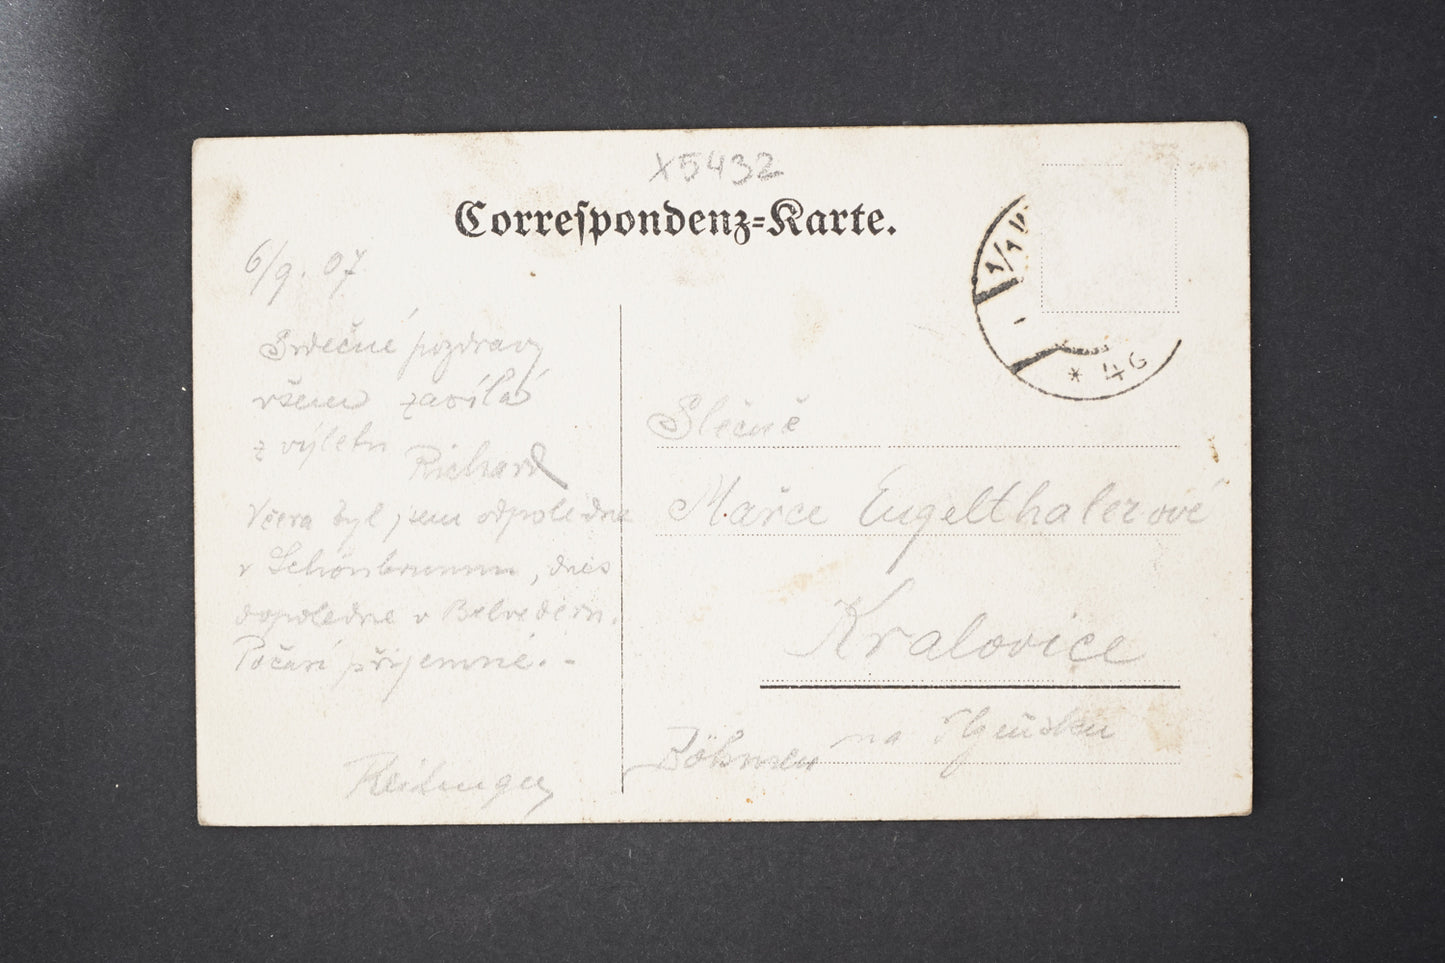 X5432
Correspondenz-Karte.
6/9. 07
Srdečné pozdravy
všem zasílá
z výletu
Richard
Včera byl jsem odpoledne
v Schönbrunnu, dnes
dopoledne v Belvederu.
Počasí příjemné. -
Slečně
Mařce Engelthalerové
Kralovice
na
Böhmen
* 4G